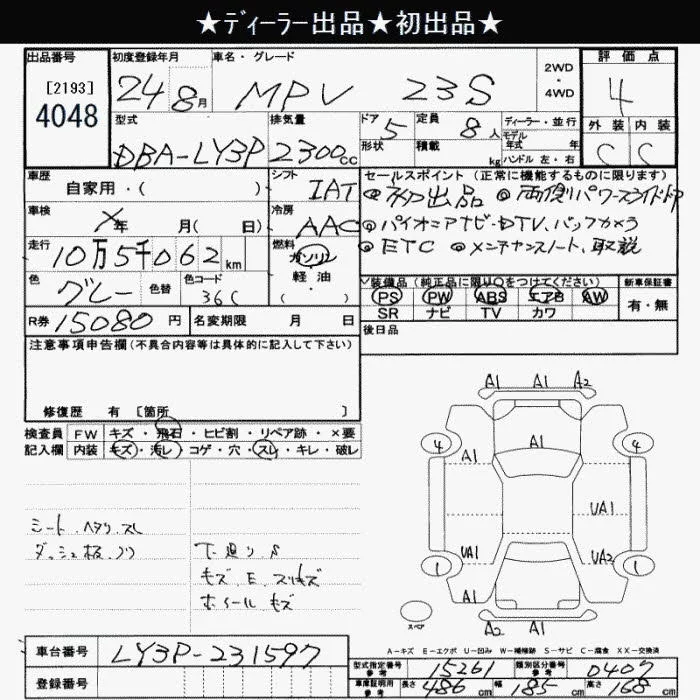 ★ディーラー出品★初出品★
出品番号 初度登録年月 車名・グレード 2WD・4WD 評価点
[2193] 4048 24年 8月 MPV 23S 4
型式 排気量 ドア 定員 ディーラー・並行 外装 内装
DBA-LY3P 2300cc 5 8人 モデル年式 年 C C
形状 積載 kg ハンドル 左・右
車歴 シフト セールスポイント(正常に機能するものに限ります)
自家用・( ) IAT ◎初出品 ◎両側パワースライドドア
車検 年 月(日) 冷房 AAC ◎パイオニアナビ・DTV、バックカメラ
走行 10万5千062km 燃料 ガソリン 軽油・( ) ◎ETC ◎メンテナンスノート、取説
色 グレー 色替 色コード 36C 装備品(純正品に限り○をつけてください) 新車保証書
PS PW ABS エアB AW 有・無
SR ナビ TV カワ
R券 15080円 名変期限 月 日 後日品
注意事項申告欄(不具合内容等は具体的に記入して下さい)
修復歴 有 [箇所 ]
検査員 FW キズ・飛石・ヒビ割・リペア跡・×要
記入欄 内装 キズ・汚レ・コゲ・穴・スレ・キレ・破レ
シート、ヘタリ、スレ
ダッシュ板、ノリ
下廻りS
キズ、E、スリキズ
ホイールキズ
A1 A1 A2
4 A1 A1 4
UA1
UA1 UA2
1 1
A1 A1
A2 A1
スペア
A-キズ E-エクボ U-凹み W-補修跡 S-サビ C-腐食 XX-交換済
車台番号 LY3P-231597 型式指定番号 参考 15261 類別区分番号 参考 0407
登録番号 車庫証明用 参考 長さ 486cm 幅 185cm 高さ 168cm